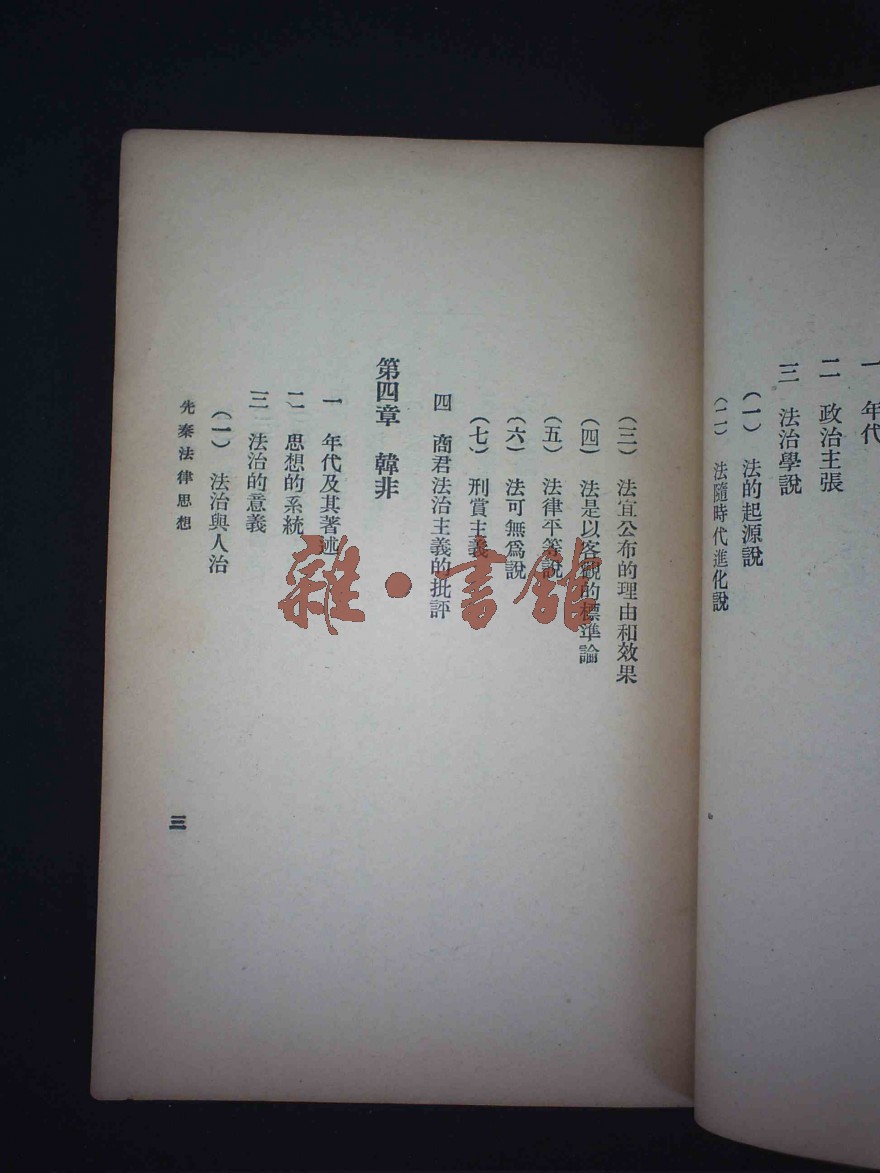 一　年代
二　政治主張
三　法治學說
（一）　法的起源說
（二）　法隨時代進化說
（三）　法宜公布的理由和效果
（四）　法是以客觀的標準論
（五）　法律平等說
（六）　法可無爲說
（七）　刑賞主義
四　商君法治主義的批評
第四章　韓非
一　年代及其著述
二　思想的系統
三　法治的意義
（一）　法治與人治
先秦法律思想
三
雜·書館